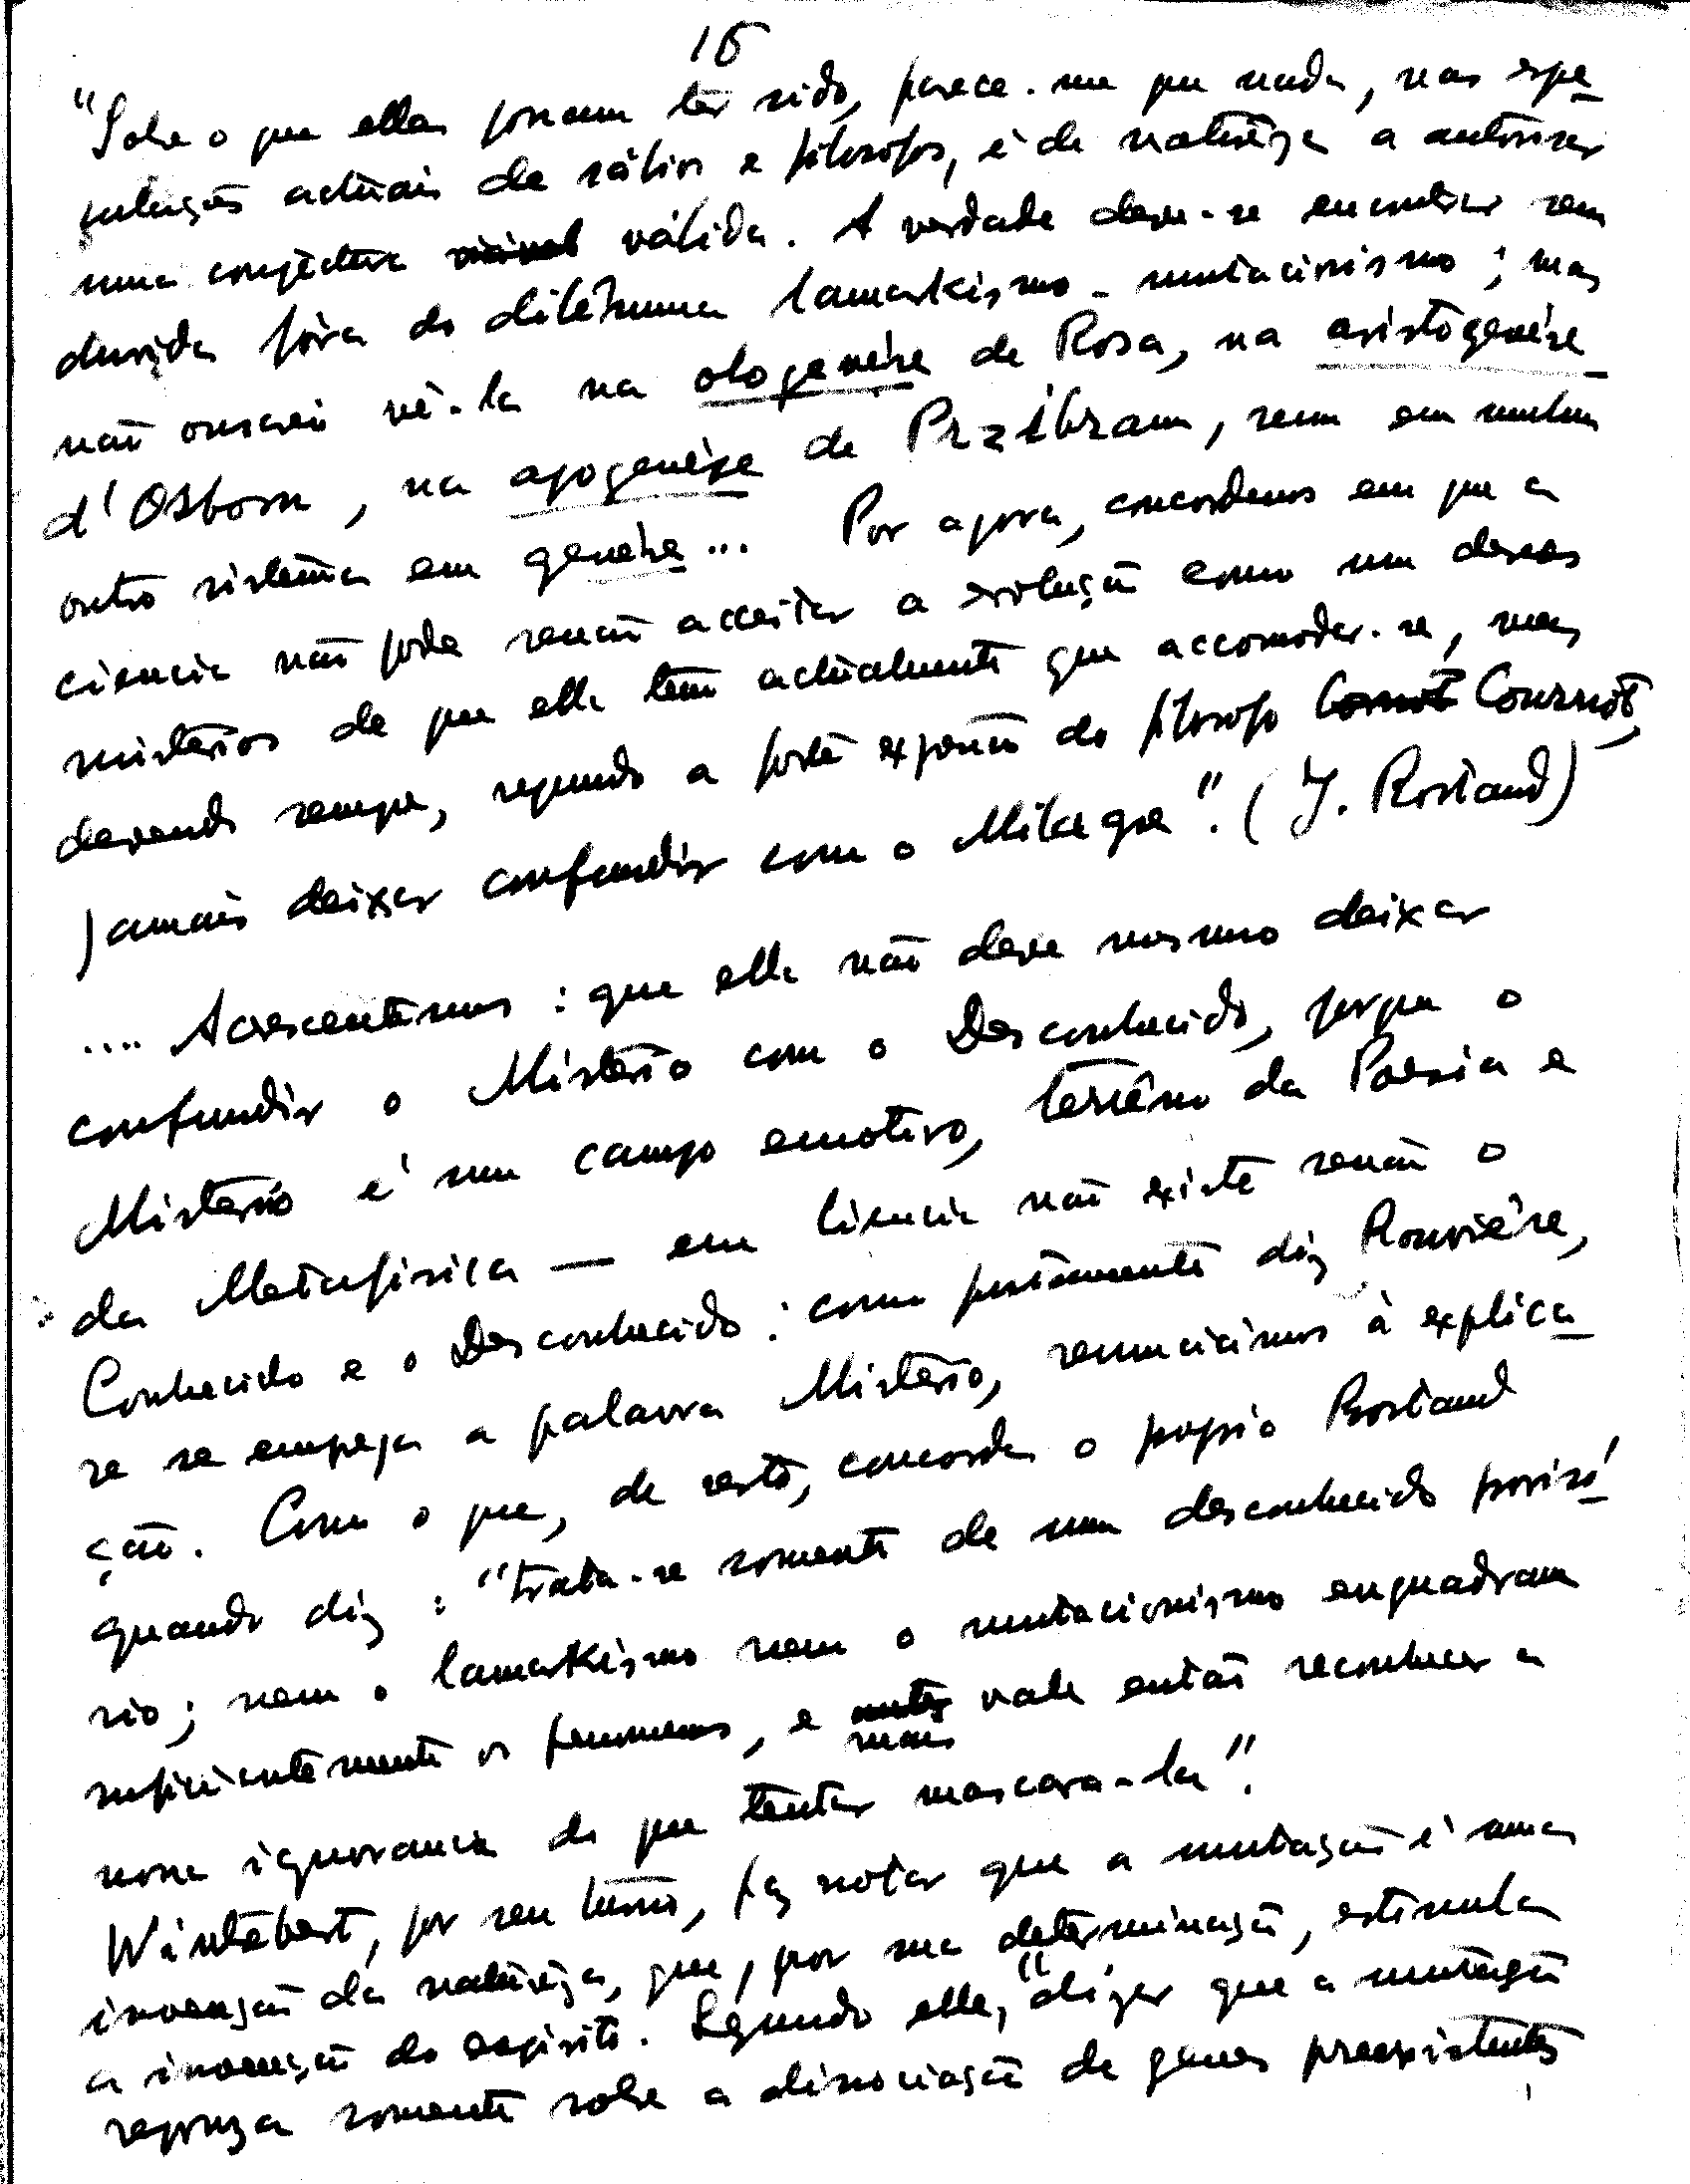 16
"Sobre o que ellas possam ter sido, parece-me que nada, nas espe
culações actuais de sábios e filosofos, é de naturêza a autorisar
uma conjectura válida. A verdade deve-se encontrar sem
duvida fóra do dilêmma lamarkismo-mutacionismo; mas
não ousarei vê-la na ologenése de Rosa, na aristogenése
d'Osborn, na apogenése de Przibram, nem em nenhum
outro sistêma em genése... Por agora, concordemos em que a
ciencia não pode senão acceitar a evolução como um desses
misterios de que ella tem actualmente que accomodar-se, mas
devendo sempre, segundo a forte expressão do filosofo Cornot Cournot,
jamais deixar confundir com o Milagre". (J. Rostand)
.... Acrescentemos: que ella não deve mesmo deixar
confundir o Misterio com o Desconhecido, porque o
Misterio é um campo emotivo, terrêno da Poesia e
da Metafisica — em Ciencia não existe senão o
Conhecido e o Desconhecido: como justamente diz Rouviére,
se se emprega a palavra Misterio, renunciamos à explica
ção. Com o que, de resto, concorda o proprio Rostand
quando diz: "trata-se somente de um desconhecido provisó
rio; nem o lamarkismo nem o mutacionismo enquadram
suficientemente os fenomenos, e mais vale então reconhecer a
nossa ignorancia do que tentar mascara-la".
Wintebert, por seu turno, faz notar que a mutação é uma
invenção da naturêza, que, por sua determinação, estimula
a invenção do espirito. Segundo elle, "dizer que a mutação
repousa somente sobre a dissociação de genes preexistentes